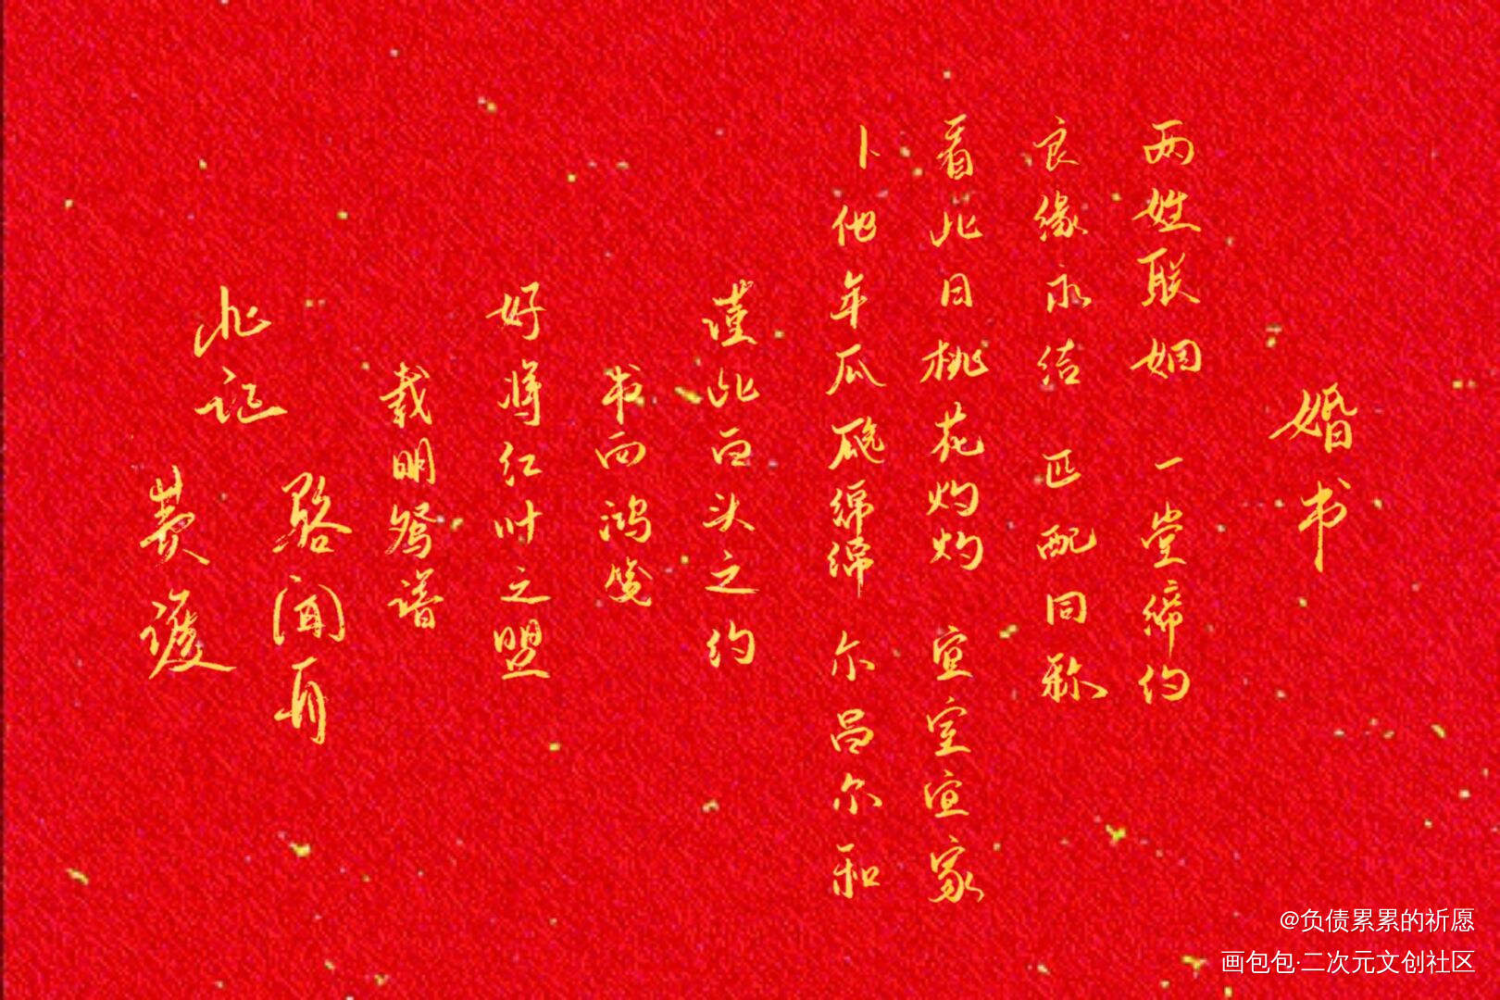 婚书
两姓联姻 一堂缔约
良缘永结 匹配同称
看此日桃花灼灼 宜室宜家
卜他年瓜瓞绵绵 尔昌尔和
谨此白头之约
书向鸿笺
好将红叶之盟
载明鸳谱
此证
骆闻舟
费渡
@负债累累的祈愿
画包包·二次元文创社区